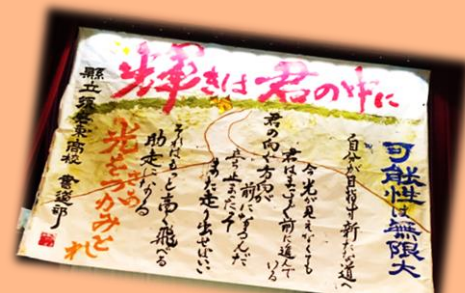 輝きは君の中に
可能性は無限大
自分が目指す新たな道へ
今光が見えなくても
君はまっすぐ前に進んでいる
君の向く方向が
前になるんだ
立ち止まったって
また走り出せばいい
それはもっと高く飛べる
助走になる
さあ
光をつかみとれ
書道部